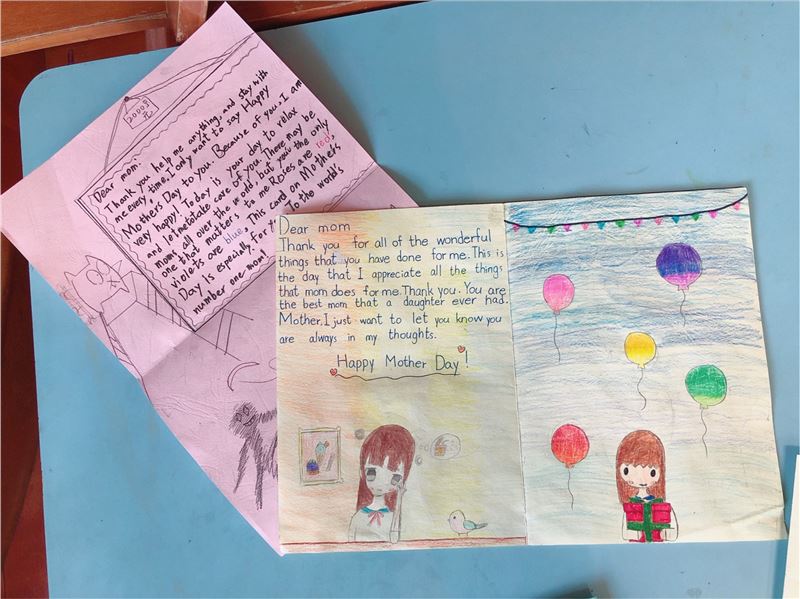 2000år元
Dear mom:
Thank you help me anything, and stay with
me every, time. I only want to say Happy
Mothers Day to you. Because of you. I am
very happy! Today is your day to relax
and let me take care of you. There may be
moms all over the world, but you're the only
one that matters to me. Roses are red,
violets are blue. This card on Mothers
Day is especially for
To the world's
number one mom
Dear mom
Thank you for all of the wonderful
things that you have done for me. This is
the day that I appreciate all the things
that mom does for me. Thank you. You are
the best mom that a daughter ever had.
Mother, I just want to let you know you
are always in my thoughts.
Happy Mother Day!